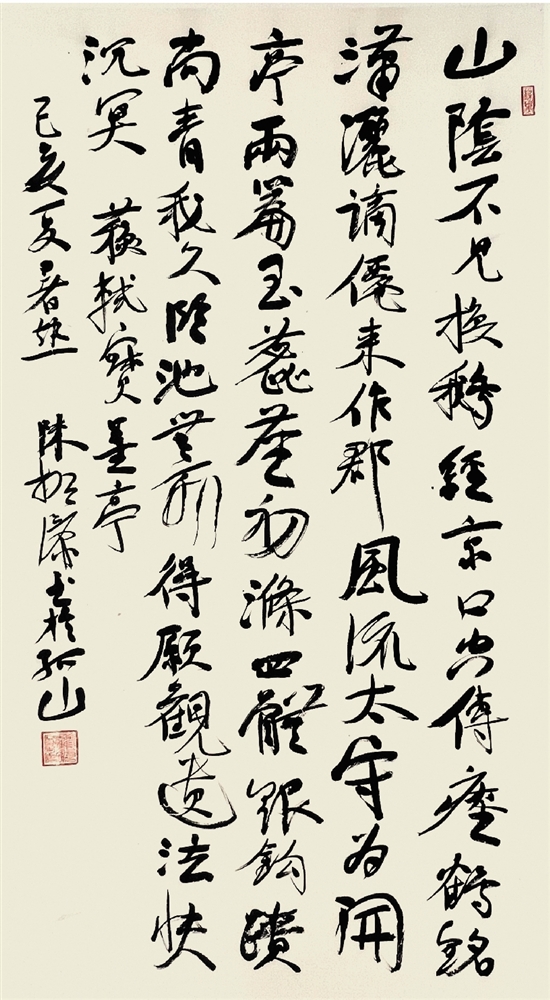 山陰不見換鵝經京口空傳瘞鶴銘
瀟灑謫僊來作郡風流太守為開
亭兩篇玉蕊塵初滌四體銀鉤蹟
尚青我久臨池無所得願觀遺法快
沉冥 蘇軾寶墨亭
己亥夏暑熱 陳振濂書於孤山